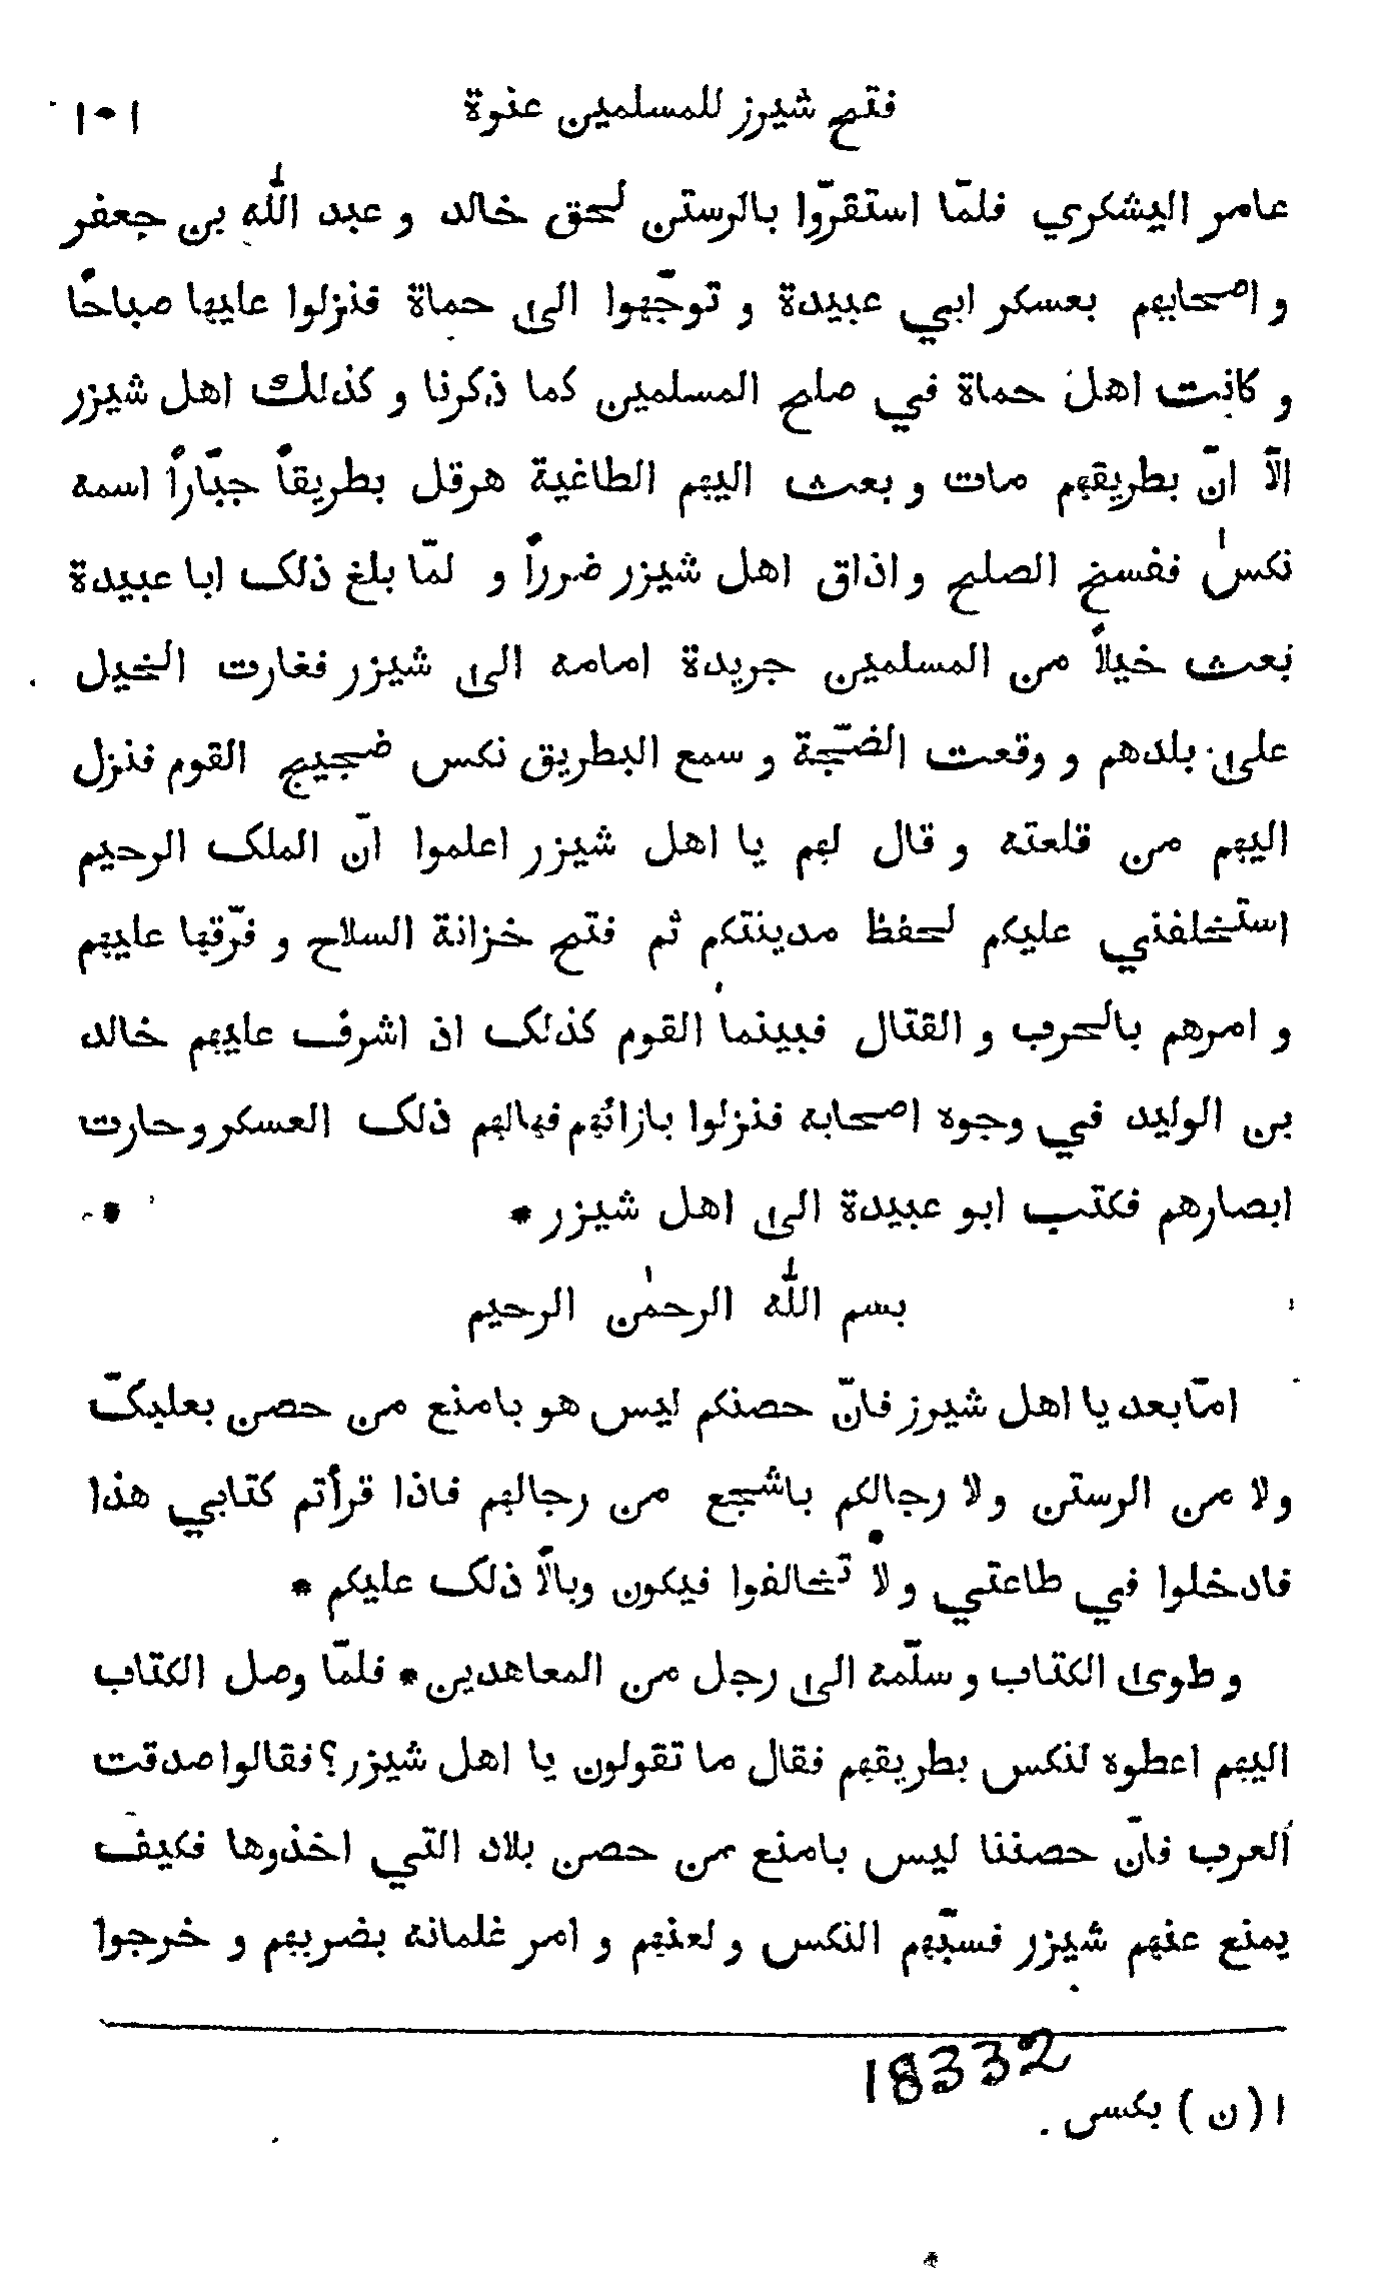 فتح شيرز للمسلمين عنوة ١٠١
عامر اليشكري فلمّا استقرّوا بالرستن لحق خالد و عبد الله بن جعفر
و اصحابهم بعسكر ابي عبيدة و توجّهوا الى حماة فنزلوا عليها صباحًا
و كانت اهل حماة في صلح المسلمين كما ذكرنا و كذلك اهل شيزر
الّا انّ بطريقهم مات و بعث اليهم الطاغية هرقل بطريقاً جبّاراً اسمه
نكس١ ففسخ الصلح و اذاق اهل شيزر ضرراً و لمّا بلغ ذلک ابا عبيدة
بعث خيلاً من المسلمين جريدة امامه الى شيزر فغارت الخيل
على بلدهم و وقعت الضجّة و سمع البطريق نكس ضجيج القوم فنزل
اليهم من قلعته و قال لهم يا اهل شيزر اعلموا انّ الملک الرحيم
استخلفني عليكم لحفظ مدينتكم ثم فتح خزانة السلاح و فرّقها عليهم
و امرهم بالحرب و القتال فبينما القوم كذلک اذ اشرف عليهم خالد
بن الوليد في وجوه اصحابه فنزلوا بازائهم فهالهم ذلک العسكر و حارت
ابصارهم فكتب ابو عبيدة الى اهل شيزر *
بسم الله الرحمٰن الرحيم
امّا بعد يا اهل شيرز فانّ حصنكم ليس هو بامنع من حصن بعلبکّ
ولا من الرستن ولا رجالكم باشجع من رجالهم فاذا قرأتم كتابي هذا
فادخلوا في طاعتي ولا تخالفوا فيكون وبالاً ذلک عليكم *
و طوى الكتاب و سلّمه الى رجل من المعاهدين * فلمّا وصل الكتاب
اليهم اعطوه لنكس بطريقهم فقال ما تقولون يا اهل شيزر؟ فقالوا صدقت
العرب فانّ حصننا ليس بامنع من حصن بلاد التي اخذوها فكيف
يمنع عنهم شيزر فسبّهم النكس و لعنهم و امر غلمانه بضربهم و خرجوا
18332
١ (ن) بكس.